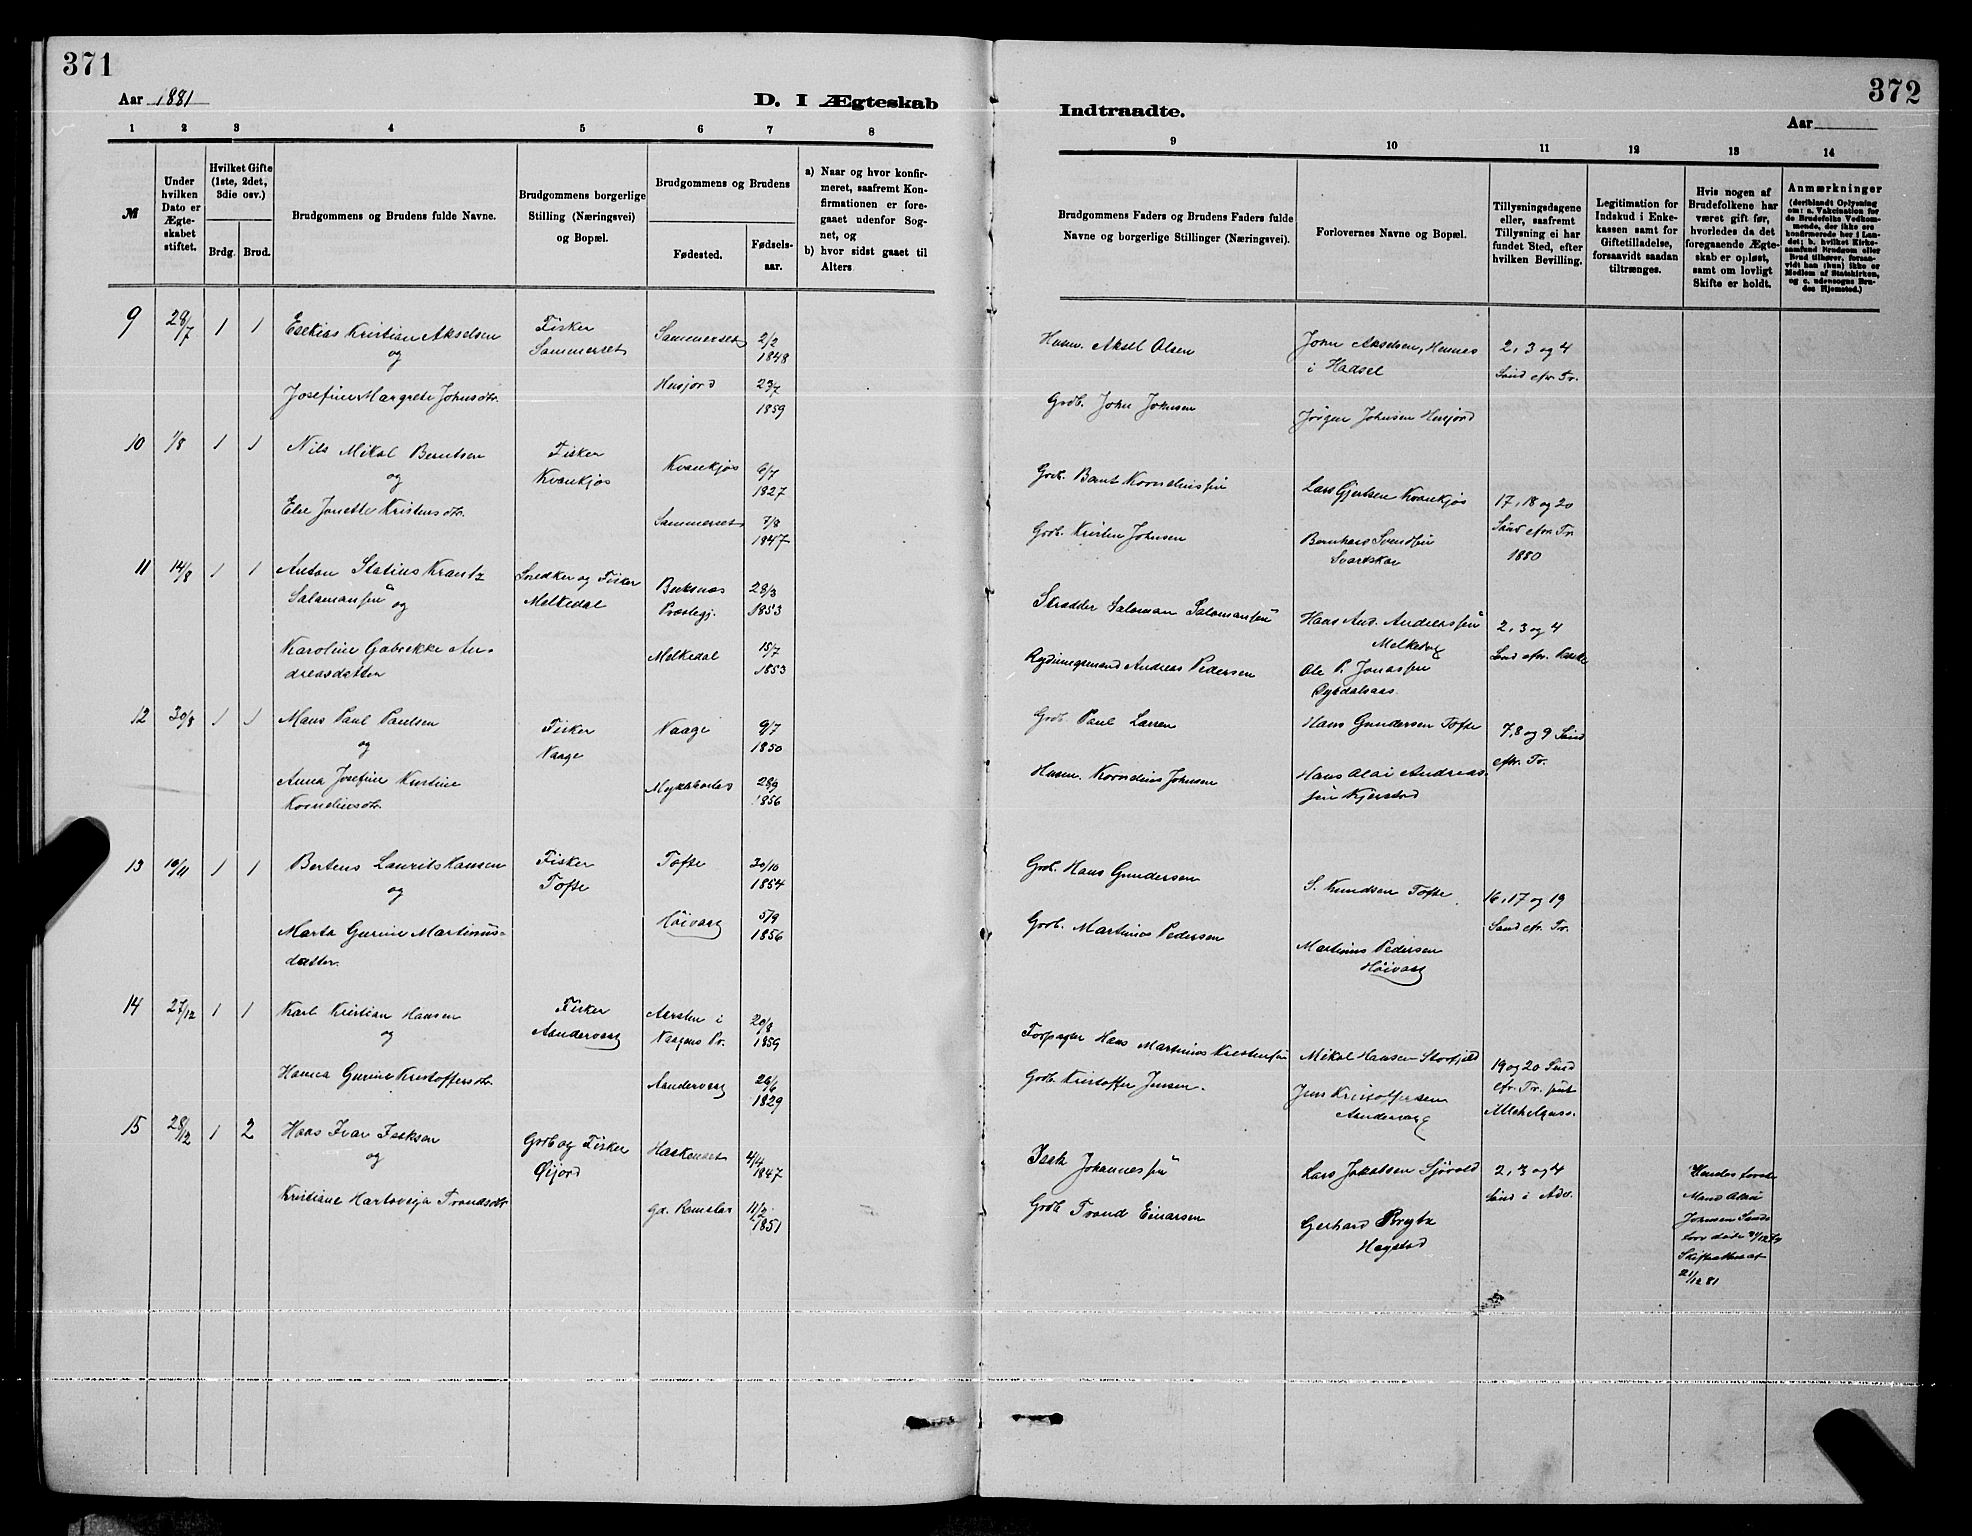 371
Aar 1881
D. I Ægteskab
1 2 3 4 5 6 7 8
M
Under hvilken Dato er Ægteskabet stiftet.
Hvilket Gifte (1ste, 2det, 3die osv.)
Brdg. Brud.
Brudgommens og Brudens fulde Navne.
Brudgommens borgerlige Stilling (Næringsvei) og Bopæl.
Brudgommens og Brudens
Fødested.
Fødselsaar.
a) Naar og hvor konfirmeret, saafremt Konfirmationen er foregaaet udenfor Sognet, og
b) hvor sidst gaaet til Alters.
9 29/7 1 1 Esekias Kristian Akselsen Fisker Sammerset 2/2
og Sammerset 1848
Josefine Margrete Johnsdtr. Husjord 29/7
1859
10 1/8 1 1 Nils Mikal Berntsen Fisker Kvankjøs 6/7
og Kvankjøs 1827
Else Jonette Kristensdtr. Sammerset 7/8
1847
11 14/8 1 1 Anton Statius Krantz Snedker og Fisker Buksnæs 28/3
Salamonsen og Melkedal Præstegj. 1853
Karoline Gabrikke An- Melkedal 15/7
dreasdatter 1853
12 30/8 1 1 Mons Paul Paulsen Fisker Vaage 9/7
og Vaage 1850
Anna Josefine Kirstine 28/9
Korneliusdtr. 1856
13 19/11 1 1 Bertens Laurits Hansen Fisker Tofte 30/10
og Tofte 1854
Marta Gurine Martinus- Höivaag 5/9
datter. 1856
14 27/12 1 1 Karl Kristian Hansen Fisker Aarsten i 20/8
og Aandervaag Vaagens Pr. 1859
Hanna Gurine Kristoffersdtr. Aandervaag 26/6
1829
15 28/12 1 2 Hans Ivar Isaksen Grdb og Fisker 4/4
og Øijord 1847
Kristiane Hartoviga Trondsdtr Gd. Ramstad 11/2
1851
372
Indtraadte.
Aar
9 10 11 12 13 14
Brudgommens Faders og Brudens Faders fulde Navne og borgerlige Stillinger (Næringsvei).
Forlovernes Navne og Bopæl.
Tillysningsdagene eller, saafremt Tillysning ei har fundet Sted, efter hvilken Bevilling.
Legitimation for Indskud i Enkekassen samt for Giftetilladelse, forsaavidt saadan tiltrænges.
Hvis nogen af Brudefolkene har været gift før, hvorledes da det foregaaende Ægteskab er opløst, samt om lovligt Skifte er holdt.
Anmærkninger (deriblandt Oplysning om: a. Vakcination for de Brudefolks Vedkommende, der ikke ere konfirmerede her i Landet; b. hvilket Kirkesamfund Brudgom eller Brud tilhører, forsaavidt han (hun) ikke er Medlem af Statskirken, og c. udensogns Brudes Hjemsted.)
Husm. Aksel Olsen John Akselsen, Hennes 2, 3 og 4
i Hadsel Sønd efr. Tr.
Grdb. John Johnsen Jørgen Johnsen Husjord
Grdb. Bernt Korneliussen Lars Gjertsen Kvankjøs 17, 18 og 20
Sønd efr. Tr.
Grdb. Kristen Johnsen Bernhard Svendsen 1880
Svartskar
Skrædder Salomon Salomonsen Hans And. Andreassen 2, 3 og 4
Melkedal Sønd efr. Paaske
Rydningsmand Andreas Pedersen Ole P. Jonassen
Grdb. Paul Larsen Hans Gundersen Tofte 7, 8 og 9 Sønd
efr. Tr.
Husm. Kornelius Johnsen Hans Olai Andreas-
sen Kjerstad
Grdb. Hans Gundersen S. Knudsen Tofte 16, 17 og 19
Sønd efr. Tr.
Grdb. Martinus Pedersen Martinus Pedersen
Höivaag
Forpagter Hans Martinus Kristensen Mikal Hansen Storfjeld 19 og 20 Sønd
efr. Tr. samt
Grdb. Kristoffer Jensen. Jens Kristoffersen Allehelgens.
Aandervaag
Isak Johannessen Lars Jakobsen Sjøvold 2, 3 og 4
Sønd i Adv.
Grdb. Trond Einarsen Gerhard Brytz
Hegstad
Hendes første
Mand Olai
Johnsen Sand-
torv døde
Skifteattest af
21/12 81